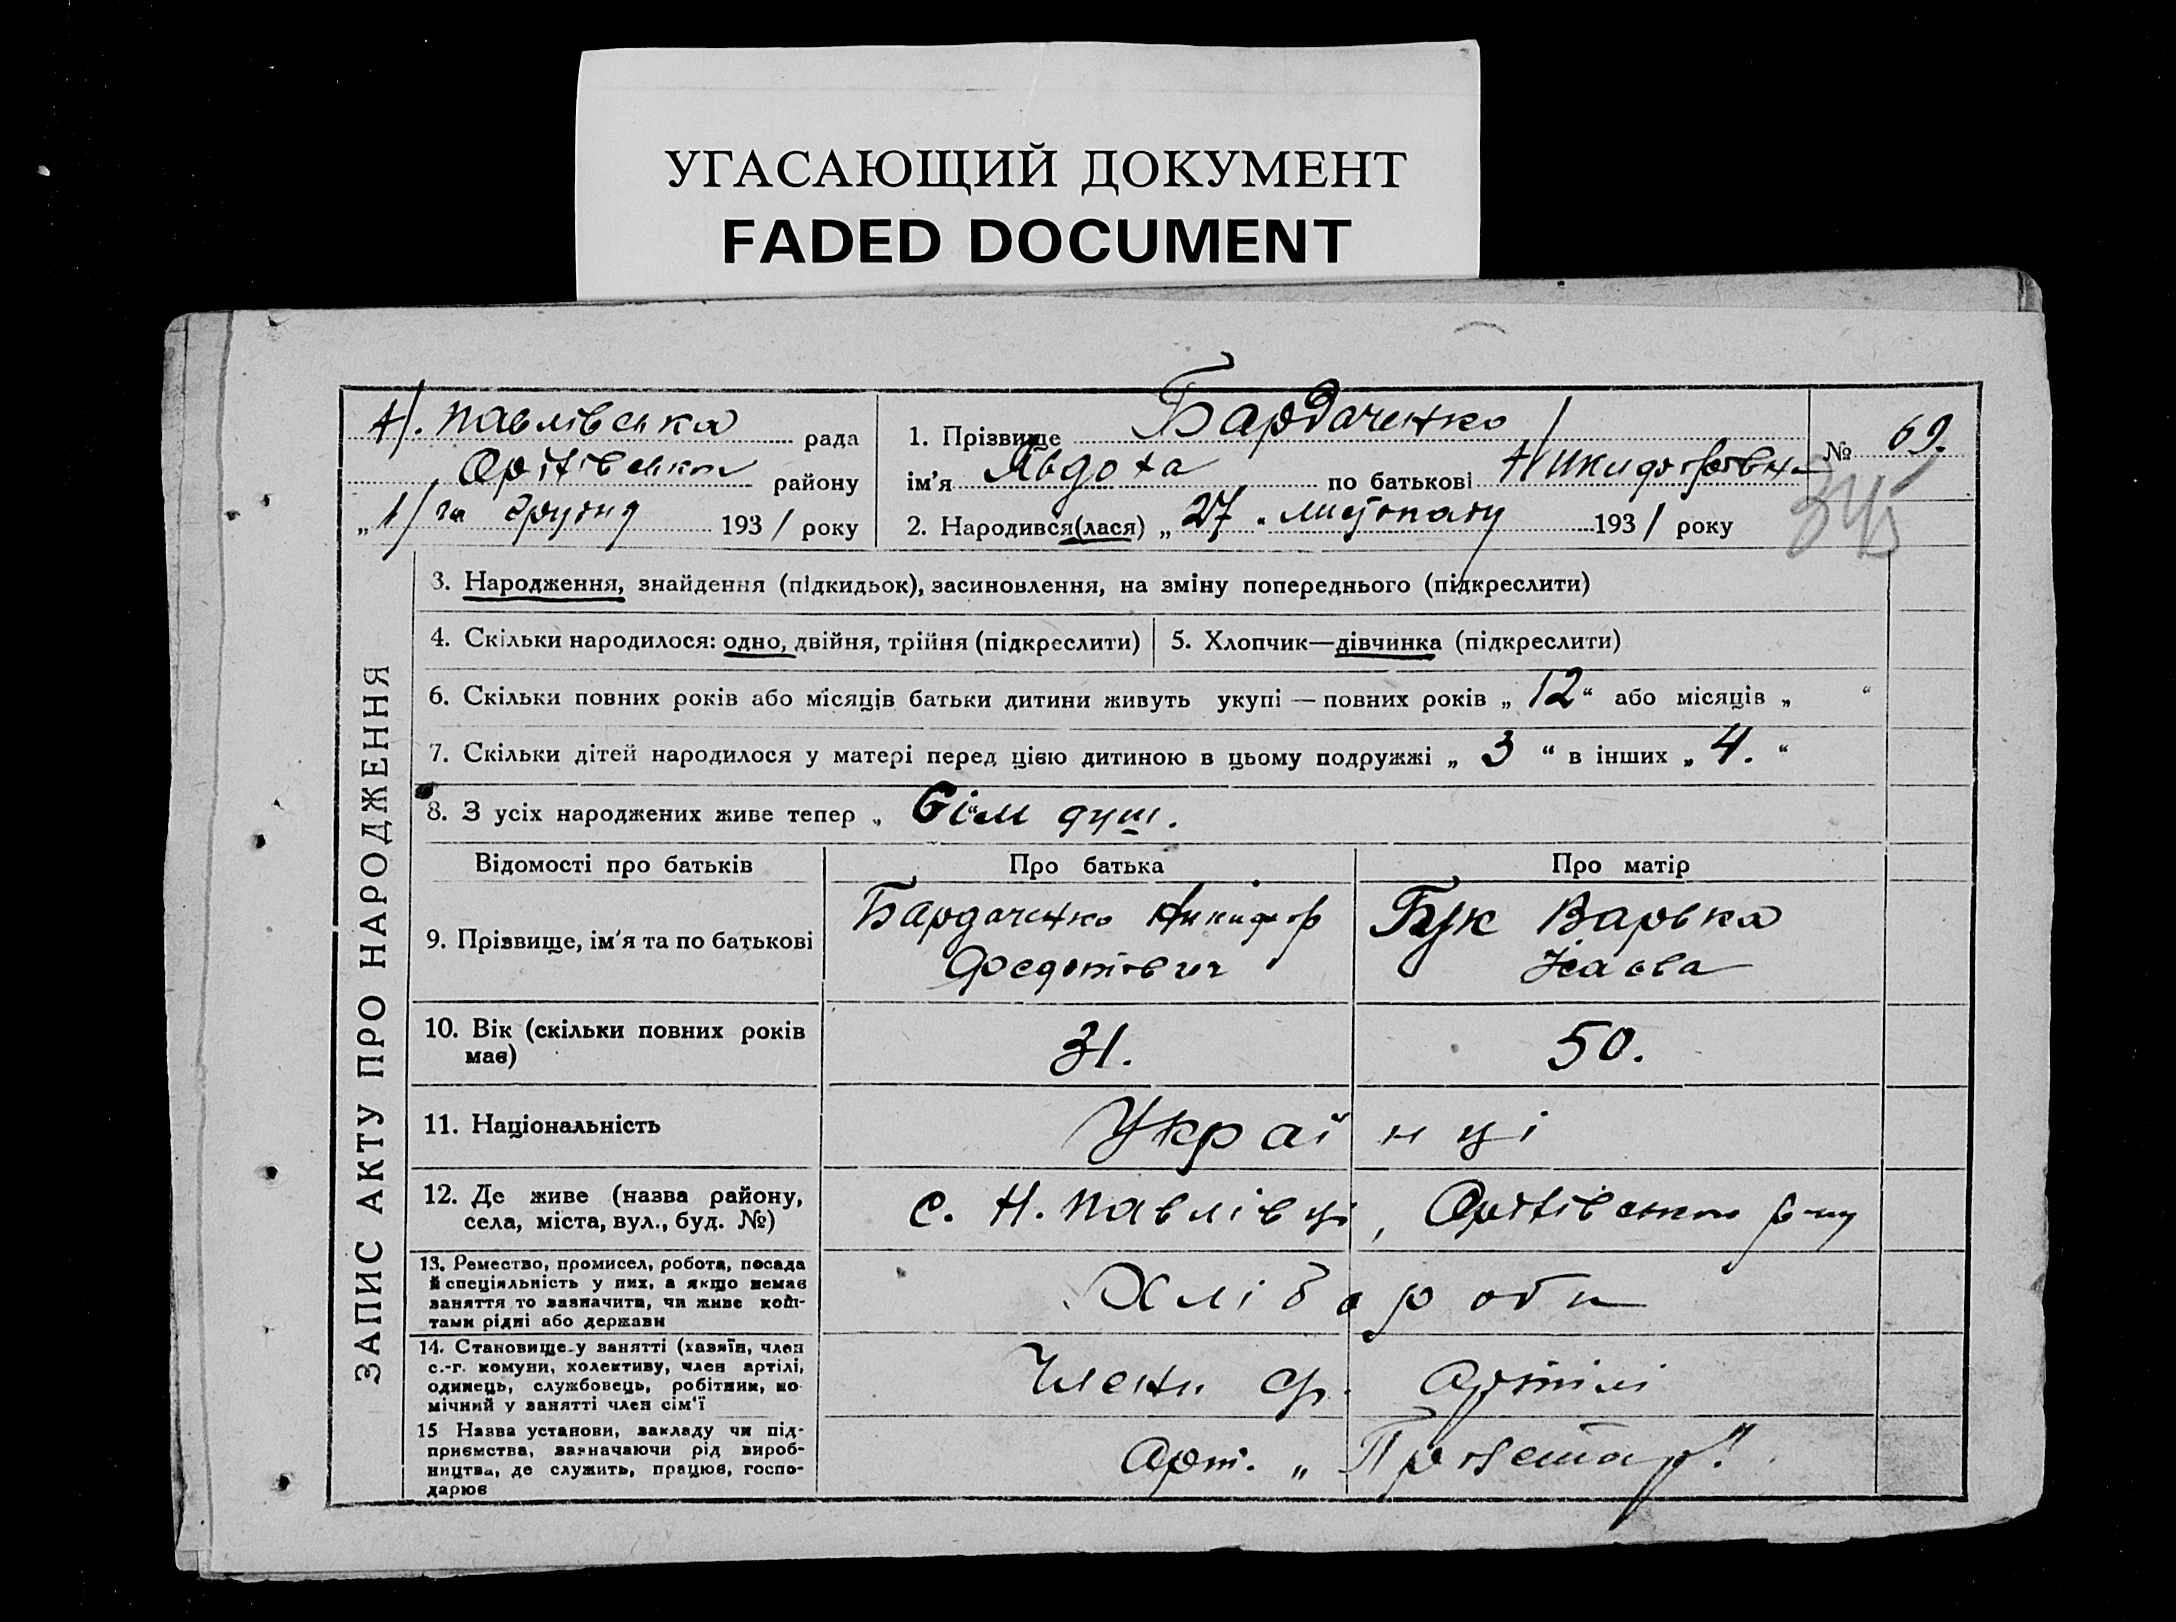 УГАСАЮЩИЙ ДОКУМЕНТ
FADED DOCUMENT
Н. Павлівська рада
Оріхівського району
„1/га грудня 1931 року
1. Прізвище Бардаченко
ім'я Явдоха по батькові Никифорівна
2. Народився(лася) „27" листопаду 1931 року
№ 69.
345
ЗАПИС АКТУ ПРО НАРОДЖЕННЯ
3. Народження, знайдення (підкидьок), засиновлення, на зміну попереднього (підкреслити)
4. Скільки народилося: одно, двійня, трійня (підкреслити) 5. Хлопчик—дівчинка (підкреслити)
6. Скільки повних років або місяців батьки дитини живуть укупі — повних років „12“ або місяців „ “
7. Скільки дітей народилося у матері перед цією дитиною в цьому подружжі „3“ в інших „4.“
8. З усіх народжених живе тепер „ Сім душ.
Відомості про батьків Про батька Про матір
9. Прізвище, ім'я та по батькові
Бардаченко Никифор
Федотович
Бук Варька
10. Вік (скільки повних років
має)
31. 50.
11. Національність Українці
12. Де живе (назва району,
села, міста, вул., буд. №)
с. Н. Павлівці, Оріхівського р-ну
13. Ремество, промисел, робота, посада
й спеціяльність у них, а якщо немає
заняття то зазначити, чи живе кош-
тами рідні або держави
Хлібороби
14. Становище у занятті (хазяїн, член
с.-г. комуни, колективу, член артілі,
одинець, службовець, робітник, по-
мічний у занятті член сім'ї
Члени ср. Артілі
15 Назва установи, закладу чи під-
приємства, зазначаючи рід вироб-
ництва, де служить, працює, госпо-
дарює
Арт. „Пролетар".